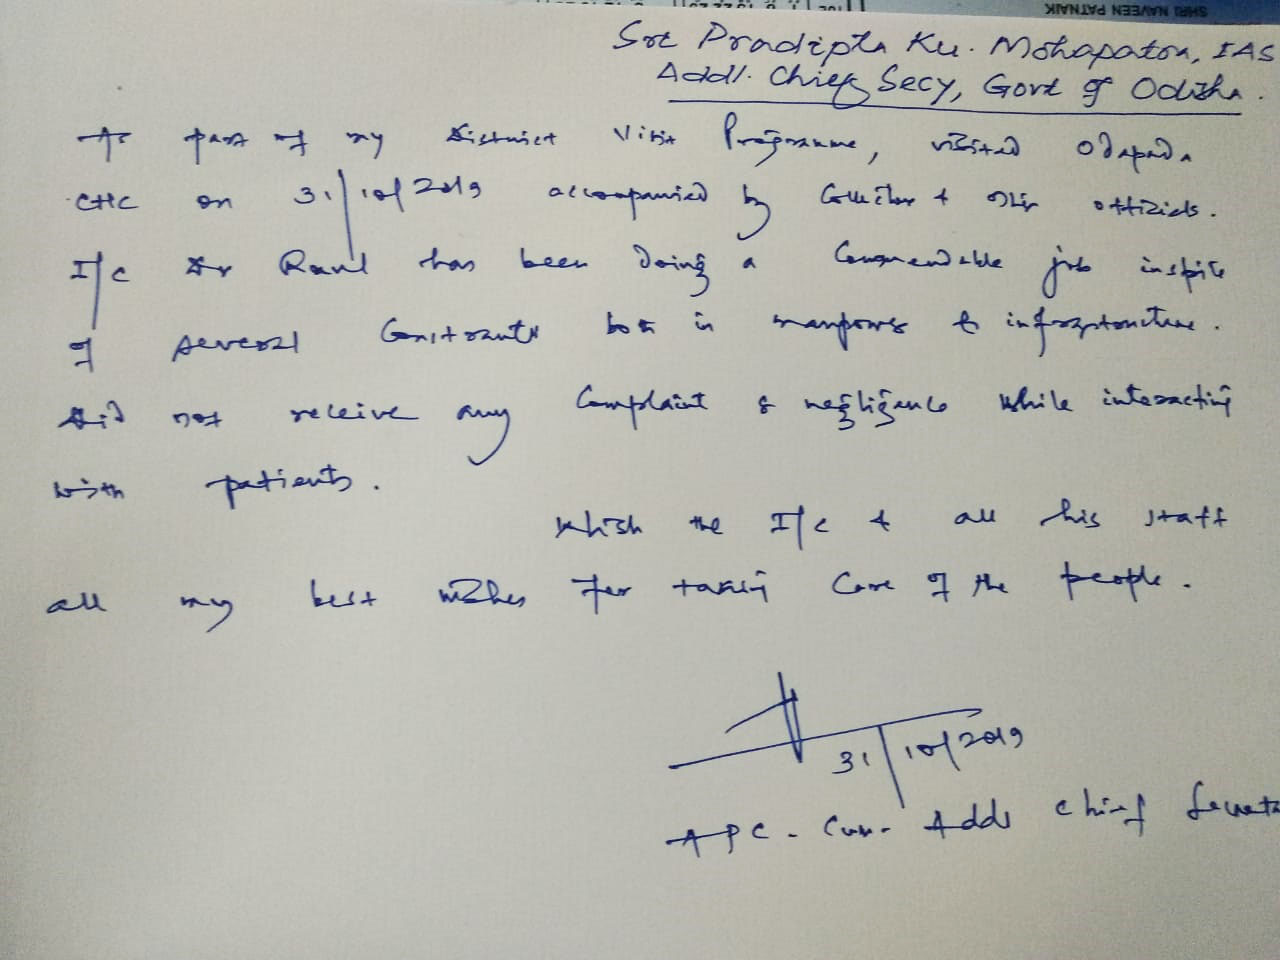 SHRI NAVEEN PATNAIK
Sri Pradipta Ku. Mohapatra, IAS
Addl. Chief Secy, Govt of Odisha.
As part of my District Visit Programme, visited Odapada
CHC on 31/10/2019 accompanied by Collector & other officials.
I/c Dr Raul has been doing a Commendable job inspite
of several Constraints both in manpower & infrastructure.
Did not receive any Complaint of negligence while interacting
with patients.
Wish the I/c & all his staff
all my best wishes for taking Care of the people.
31/10/2019
APC-Cum-Addl Chief